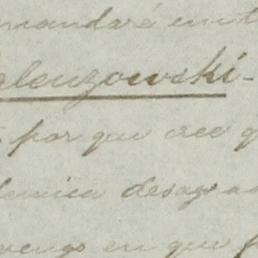 mandaré en t
alenzowski-
por que cree q
lemica desagra
vengo en que f